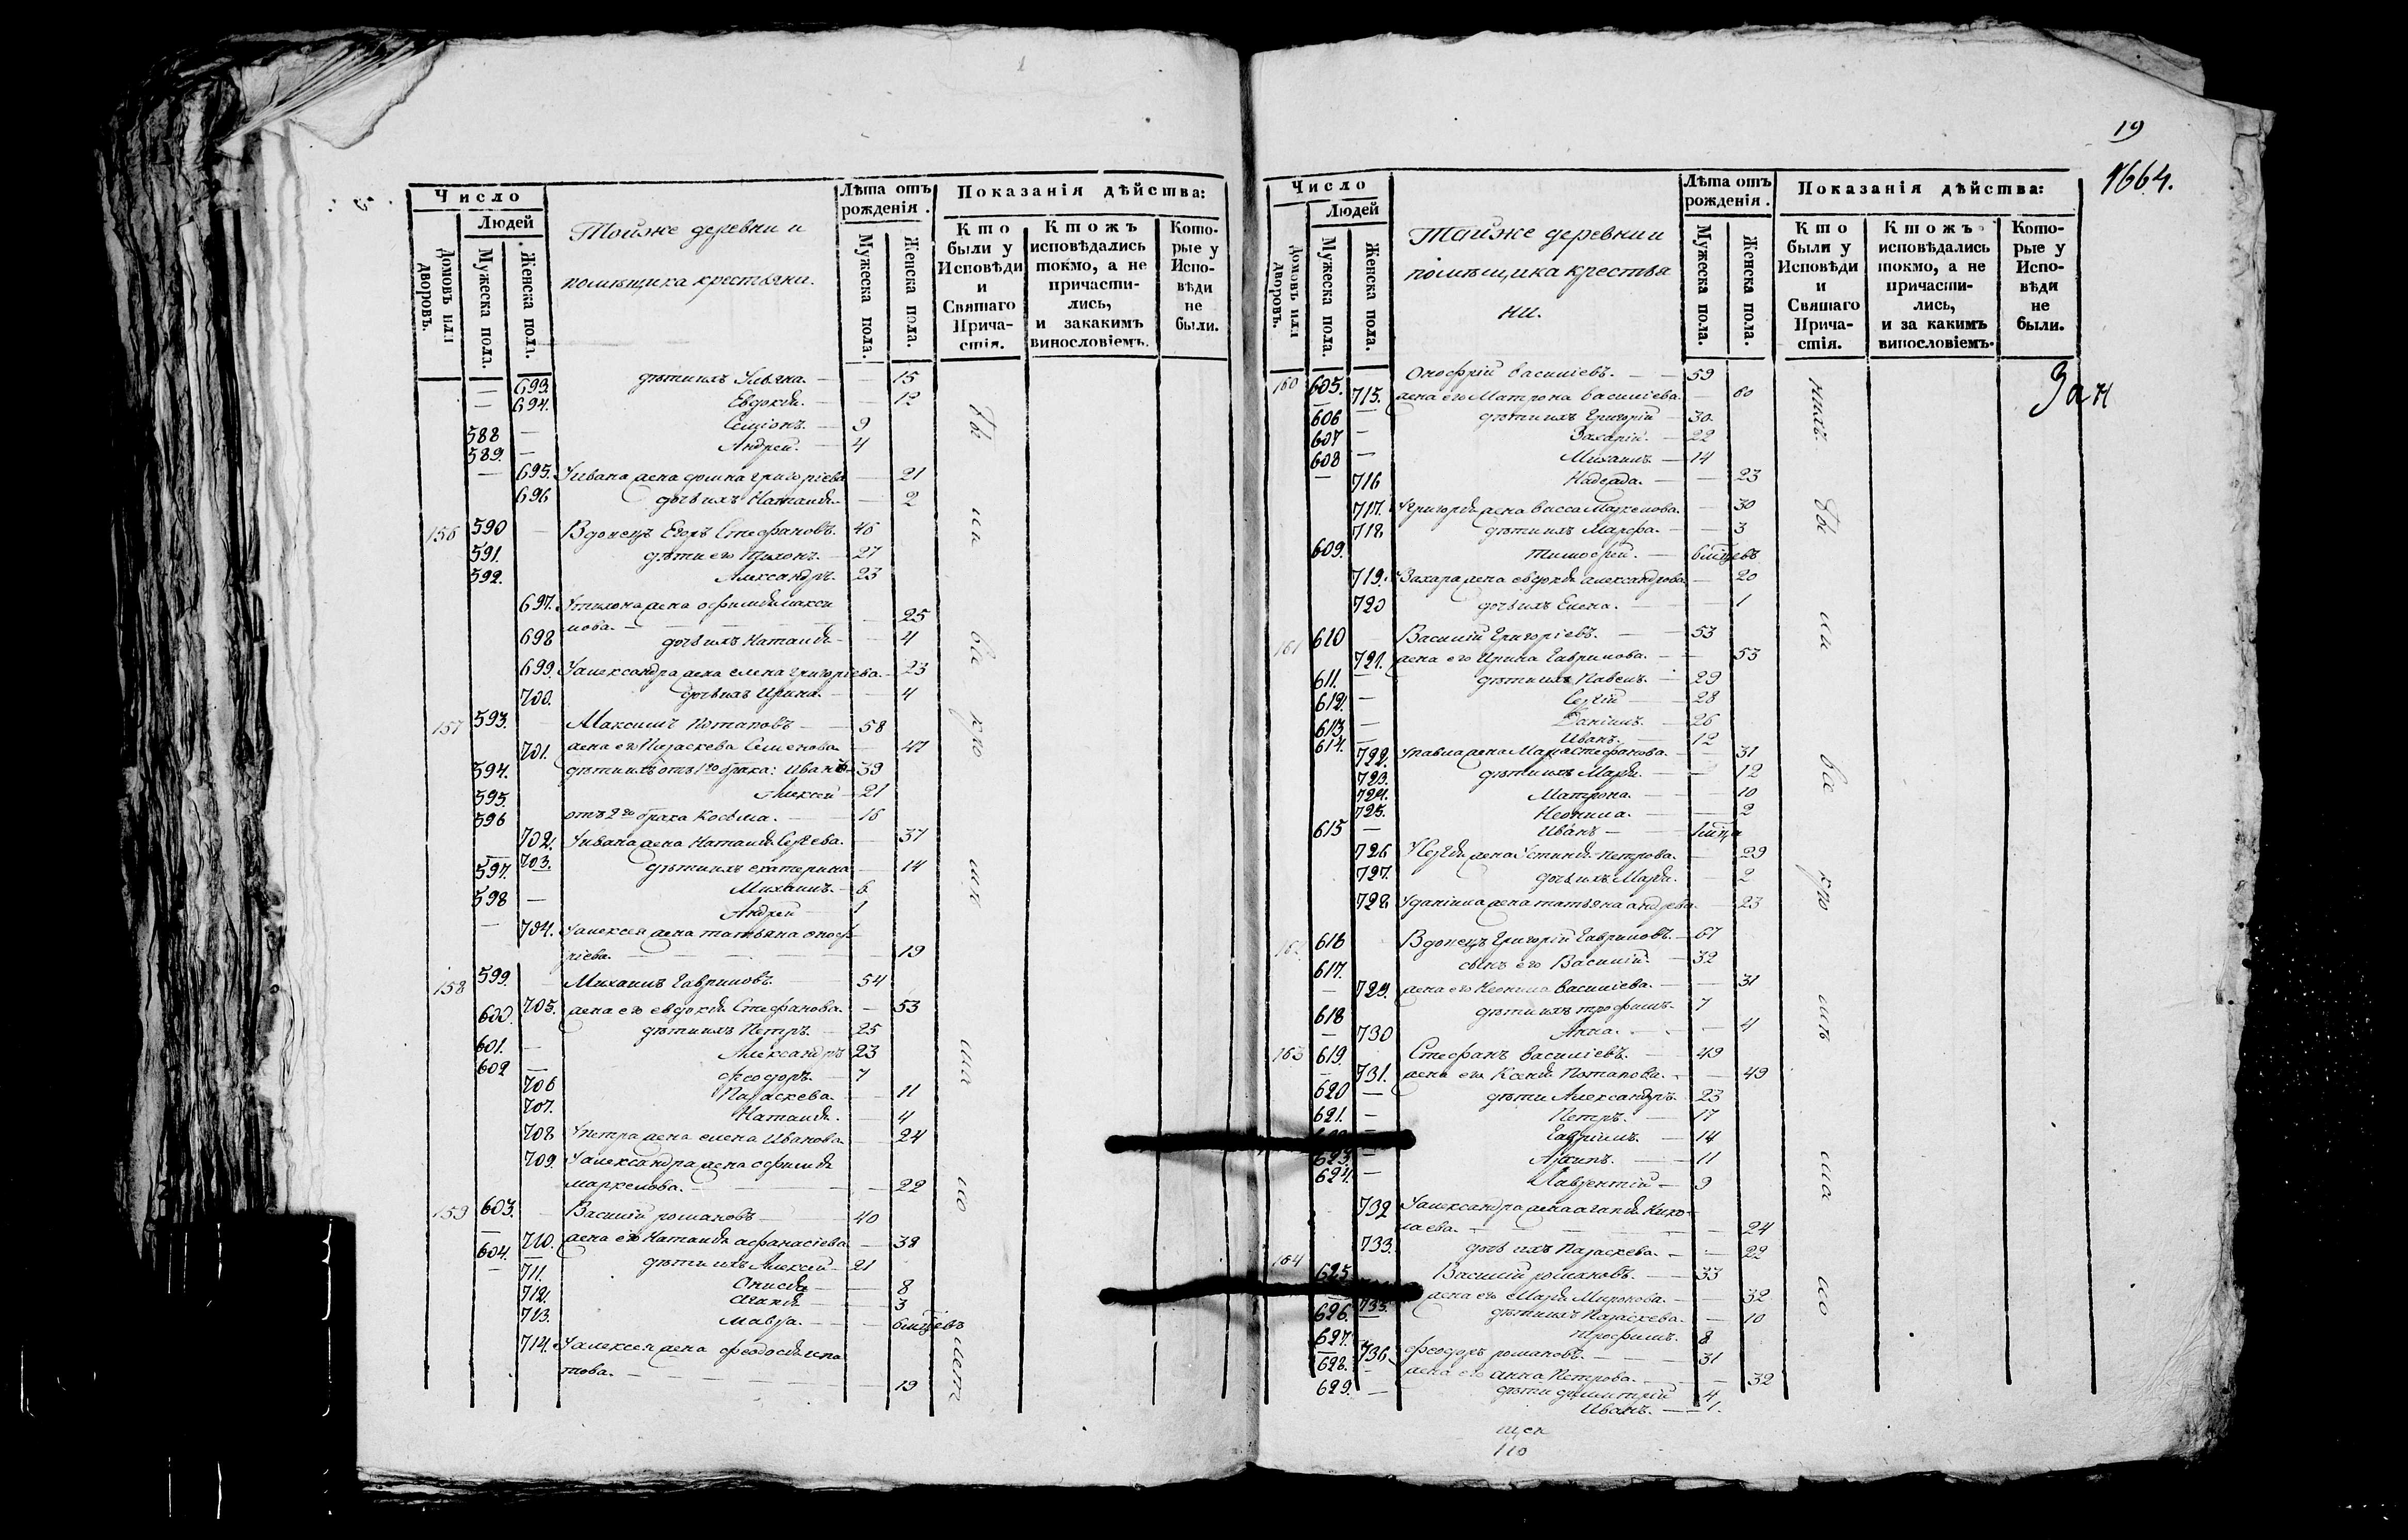 Число
Людей
Домовъ или дворовъ.
Мужеска пола.
Женска пола.
Тойже деревни и
помѣщика крестьяни.
Лѣта отъ рожденія.
Мужеска пола.
Женска пола.
Показанія дѣйства:
Кто были у Исповѣди и Святаго Причастія.
Ктожъ исповѣдались токмо, а не причастились, и закакимъ винословіемъ.
Которые у Исповѣди не были.
693. дѣти ихъ Ульяна. — 15
694. Евдокія. — 12
588 Симіонъ. — 9
589. Андрей. — 4
695. У ивана жена фоина григоріева — 21
696 дочь ихъ Наталія — 2
156 590 Вдовецъ Егоръ Стефановъ. 46
591. дѣти его Тихонъ. — 27
592. Александръ. 23
697. У тихона жена офимія макси
мова. — 25
698 дочь ихъ Наталія — 4
699. У александра жена елена григоріева — 23
700. дочь ихъ Ирина. — 4
157 593. Максимъ Потаповъ — 58
701. жена его Параскева Семенова — 47
594. дѣти ихъ отъ 1го брака: Иванъ — 39
595. Алексѣй — 21
596 отъ 2го брака Косьма. — 15
702. У ивана жена Наталія Сергѣева. 37
703. дѣти ихъ екатерина — 14
597. Михаилъ. — 6
598 Андрей — 1
704. У алексея жена татьяна оноф
ріева. — 19
158 599. Михаилъ Гавриловъ. 54
705. жена его евдокія Стефанова. — 53
600. дѣти ихъ Петръ. — 25
601. Александръ 23
602 феодоръ. — 7
706 Параскева. — 11
707. Наталія. — 4
708 У петра жена елена Иванова — 24
709. У александра жена офимія
маркелова. — 22
159 603. Василій романовъ — 40
710. жена его Наталія афанасіева — 38
604. дѣти ихъ Алексѣй — 21
711. Анисія — 8
712. агапія — 3
713. мавра. — 6 мцевъ
714. У алексея жена феодосія игна
това. — 19
бы
ли
все
кро
ма
ло
лет
19
1664.
Число
Людей
Домовъ или дворовъ.
Мужеска пола.
Женска пола.
Тойже деревни и
помѣщика крестья
ни.
Лѣта отъ рожденія.
Мужеска пола.
Женска пола.
Показанія дѣйства:
Кто были у Исповѣди и Святаго Причастія.
Ктожъ исповѣдались токмо, а не причастились, и за какимъ винословіемъ.
Которые у Исповѣди не были.
160 605. Онофрій василіевъ. — 59
715. жена его Матрона василіева. — 60
606 дѣти ихъ Григорій — 30
607 Захарій. — 22
608 Михаилъ — 14
716 Надежда. — 23
717. У Григорія жена васса Маркелова. — 30
718 дѣти ихъ Марфа. — 3
609. тимофей. — 6 мцевъ
719. У Захара жена евдокія александрова — 20
720 дочь ихъ Елена. — 1
161 610 Василій Григоріевъ. — 53
721. жена его Ирина Гаврилова. — 53
611. дѣти ихъ Павелъ. — 29
612. Сергій — 28
613. Даніилъ. — 26
614. Иванъ. — 12
722. У павла жена Марія Стефанова. — 31
723. дѣти ихъ Марія. — 12
724. Матрона. — 10
725. Неонила. — 2
615 Иванъ — 1 мца
726 У Сергія жена Устинія петрова. — 29
727. дочь ихъ Марія. — 2
728 У даніила жена татьяна андрева — 23
162 616 Вдовецъ Григорій Гавриловъ. — 67
617. сынъ его Василій. — 32
729. жена его Неонила Василіева. — 31
618 дѣти ихъ трофимъ. 7
730 Анна. — 4
163 619. Стефанъ василіевъ. — 49
731. жена его Ксенія Потапова. — 49
620 дѣти Александръ. 23
621. Петръ. — 17
Гавріилъ. — 14
623. Архипъ. — 11
624. Лаврентій — 9
732 У александра жена агапія Нико
лаева. — 24
733. дочь ихъ Параскева. — 22
164 625 Василій романовъ. — 33
жена его Марія Миронова. — 32
735. дѣти ихъ Параскева. — 10
626. трофимъ. 8
627. феодоръ романовъ. — 31
736. жена его анна Петрова. — 32
628. дѣти димитрій 4
629. Иванъ. — 1.
нихъ.
бы
ли
все
кро
мѣ
ма
ло
110